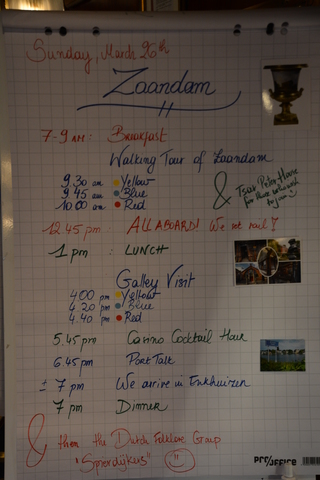 Sunday, March 26th
Zaandam
7-9 AM: Breakfast
Walking Tour of Zaandam
9.30 am Yellow
9.45 am Blue
10.00 am Red
& Tsar Peter House
for those who want
to join
12.45 pm: ALL ABOARD! We set sail!
1 pm: LUNCH
Galley Visit
4.00 pm Yellow
4.20 pm Blue
4.40 pm Red
5.45 pm Casino Cocktail Hour
6.45 pm Port Talk
± 7 pm We arrive in Enkhuizen
7 pm Dinner
& then the Dutch Folklore Group
"Spierdijkers"
PRO/OFFICE